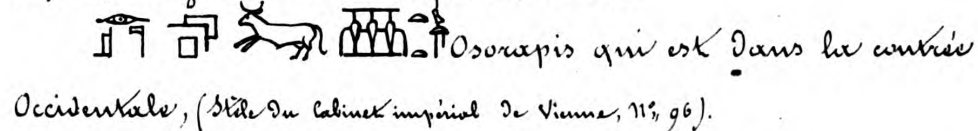 Osorapis qui est dans la contrée
Occidentale, (Stèle du Cabinet impérial de Vienne, N°, 96).